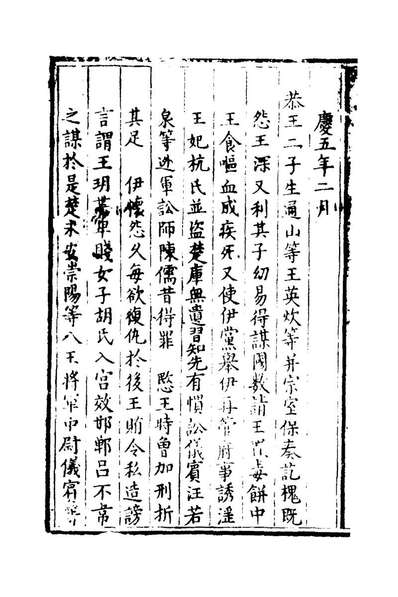 慶五年二月
恭王二子生通山等王英炊等并宗室保秦記槐既
怨王深又利其子幼易得謀閣數請王置毒餅中
王食嘔血成疾死又使伊黨舉伊再管府事誘淫
王妃杭氏並盜楚庫無遺習知先有慣訟儀賓汪若
泉等迯軍訟師陳儒昔得罪 愍王時曾加刑折
其足 伊懷怨久每欲復仇於後王賄令私造謗
言謂王玥軍賤女子胡氏入宮效邯鄲呂不韋
之謀於是楚永安崇陽等八王將軍中尉儀賓